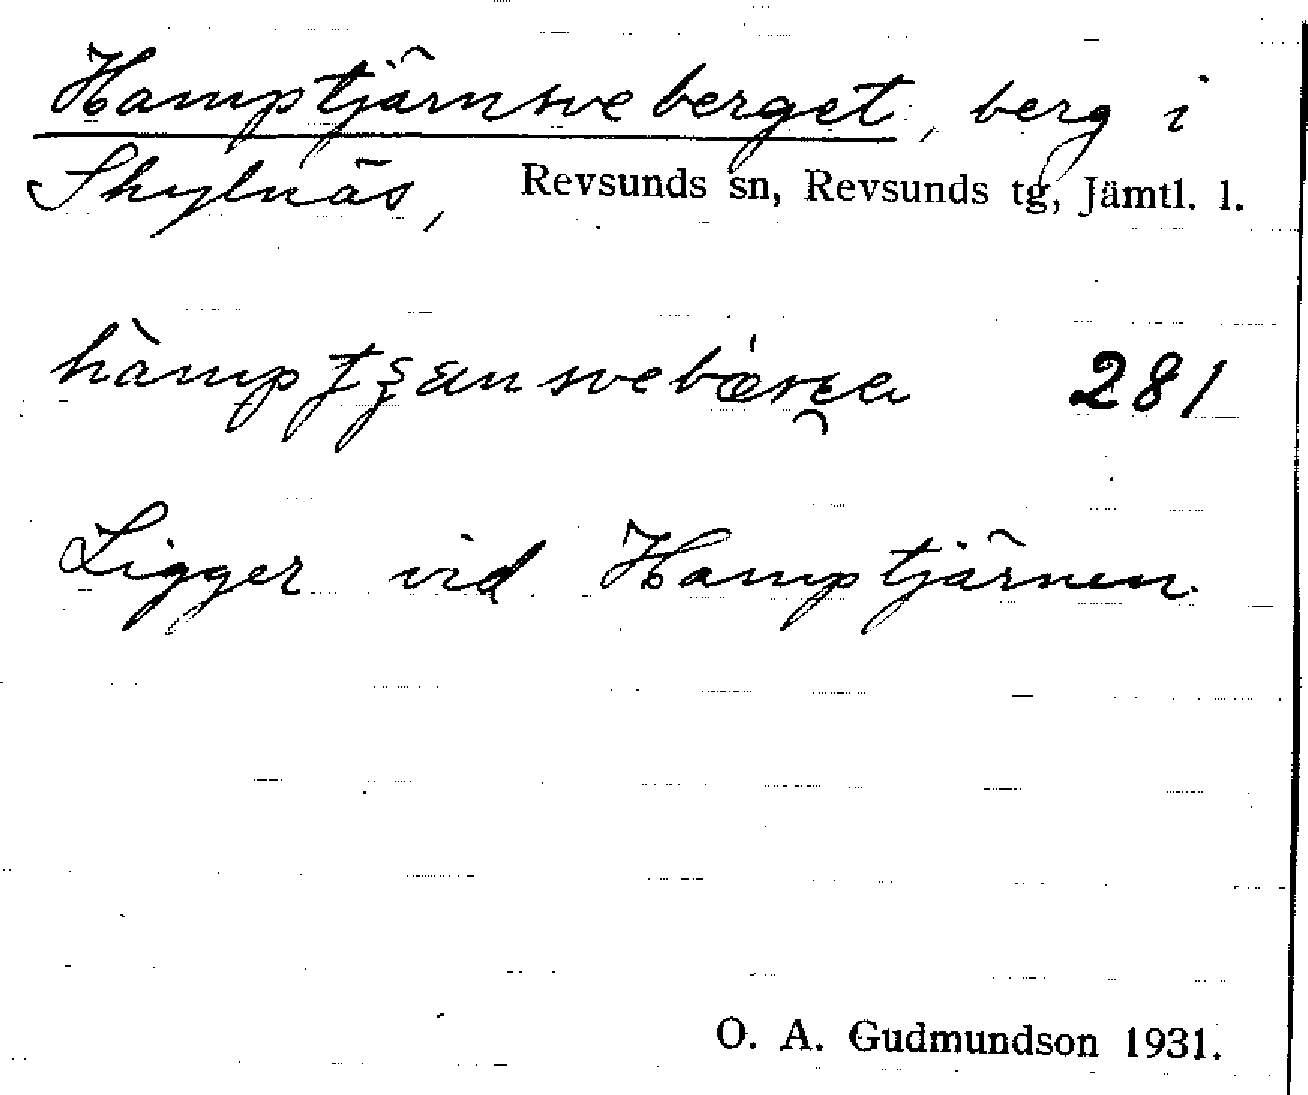 Hamptjärnsveberget, berg i
Skylnäs, Revsunds sn, Revsunds tg, Jämtl. l.
281
Ligger vid Hamptjärnen.
O. A. Gudmundson 1931.